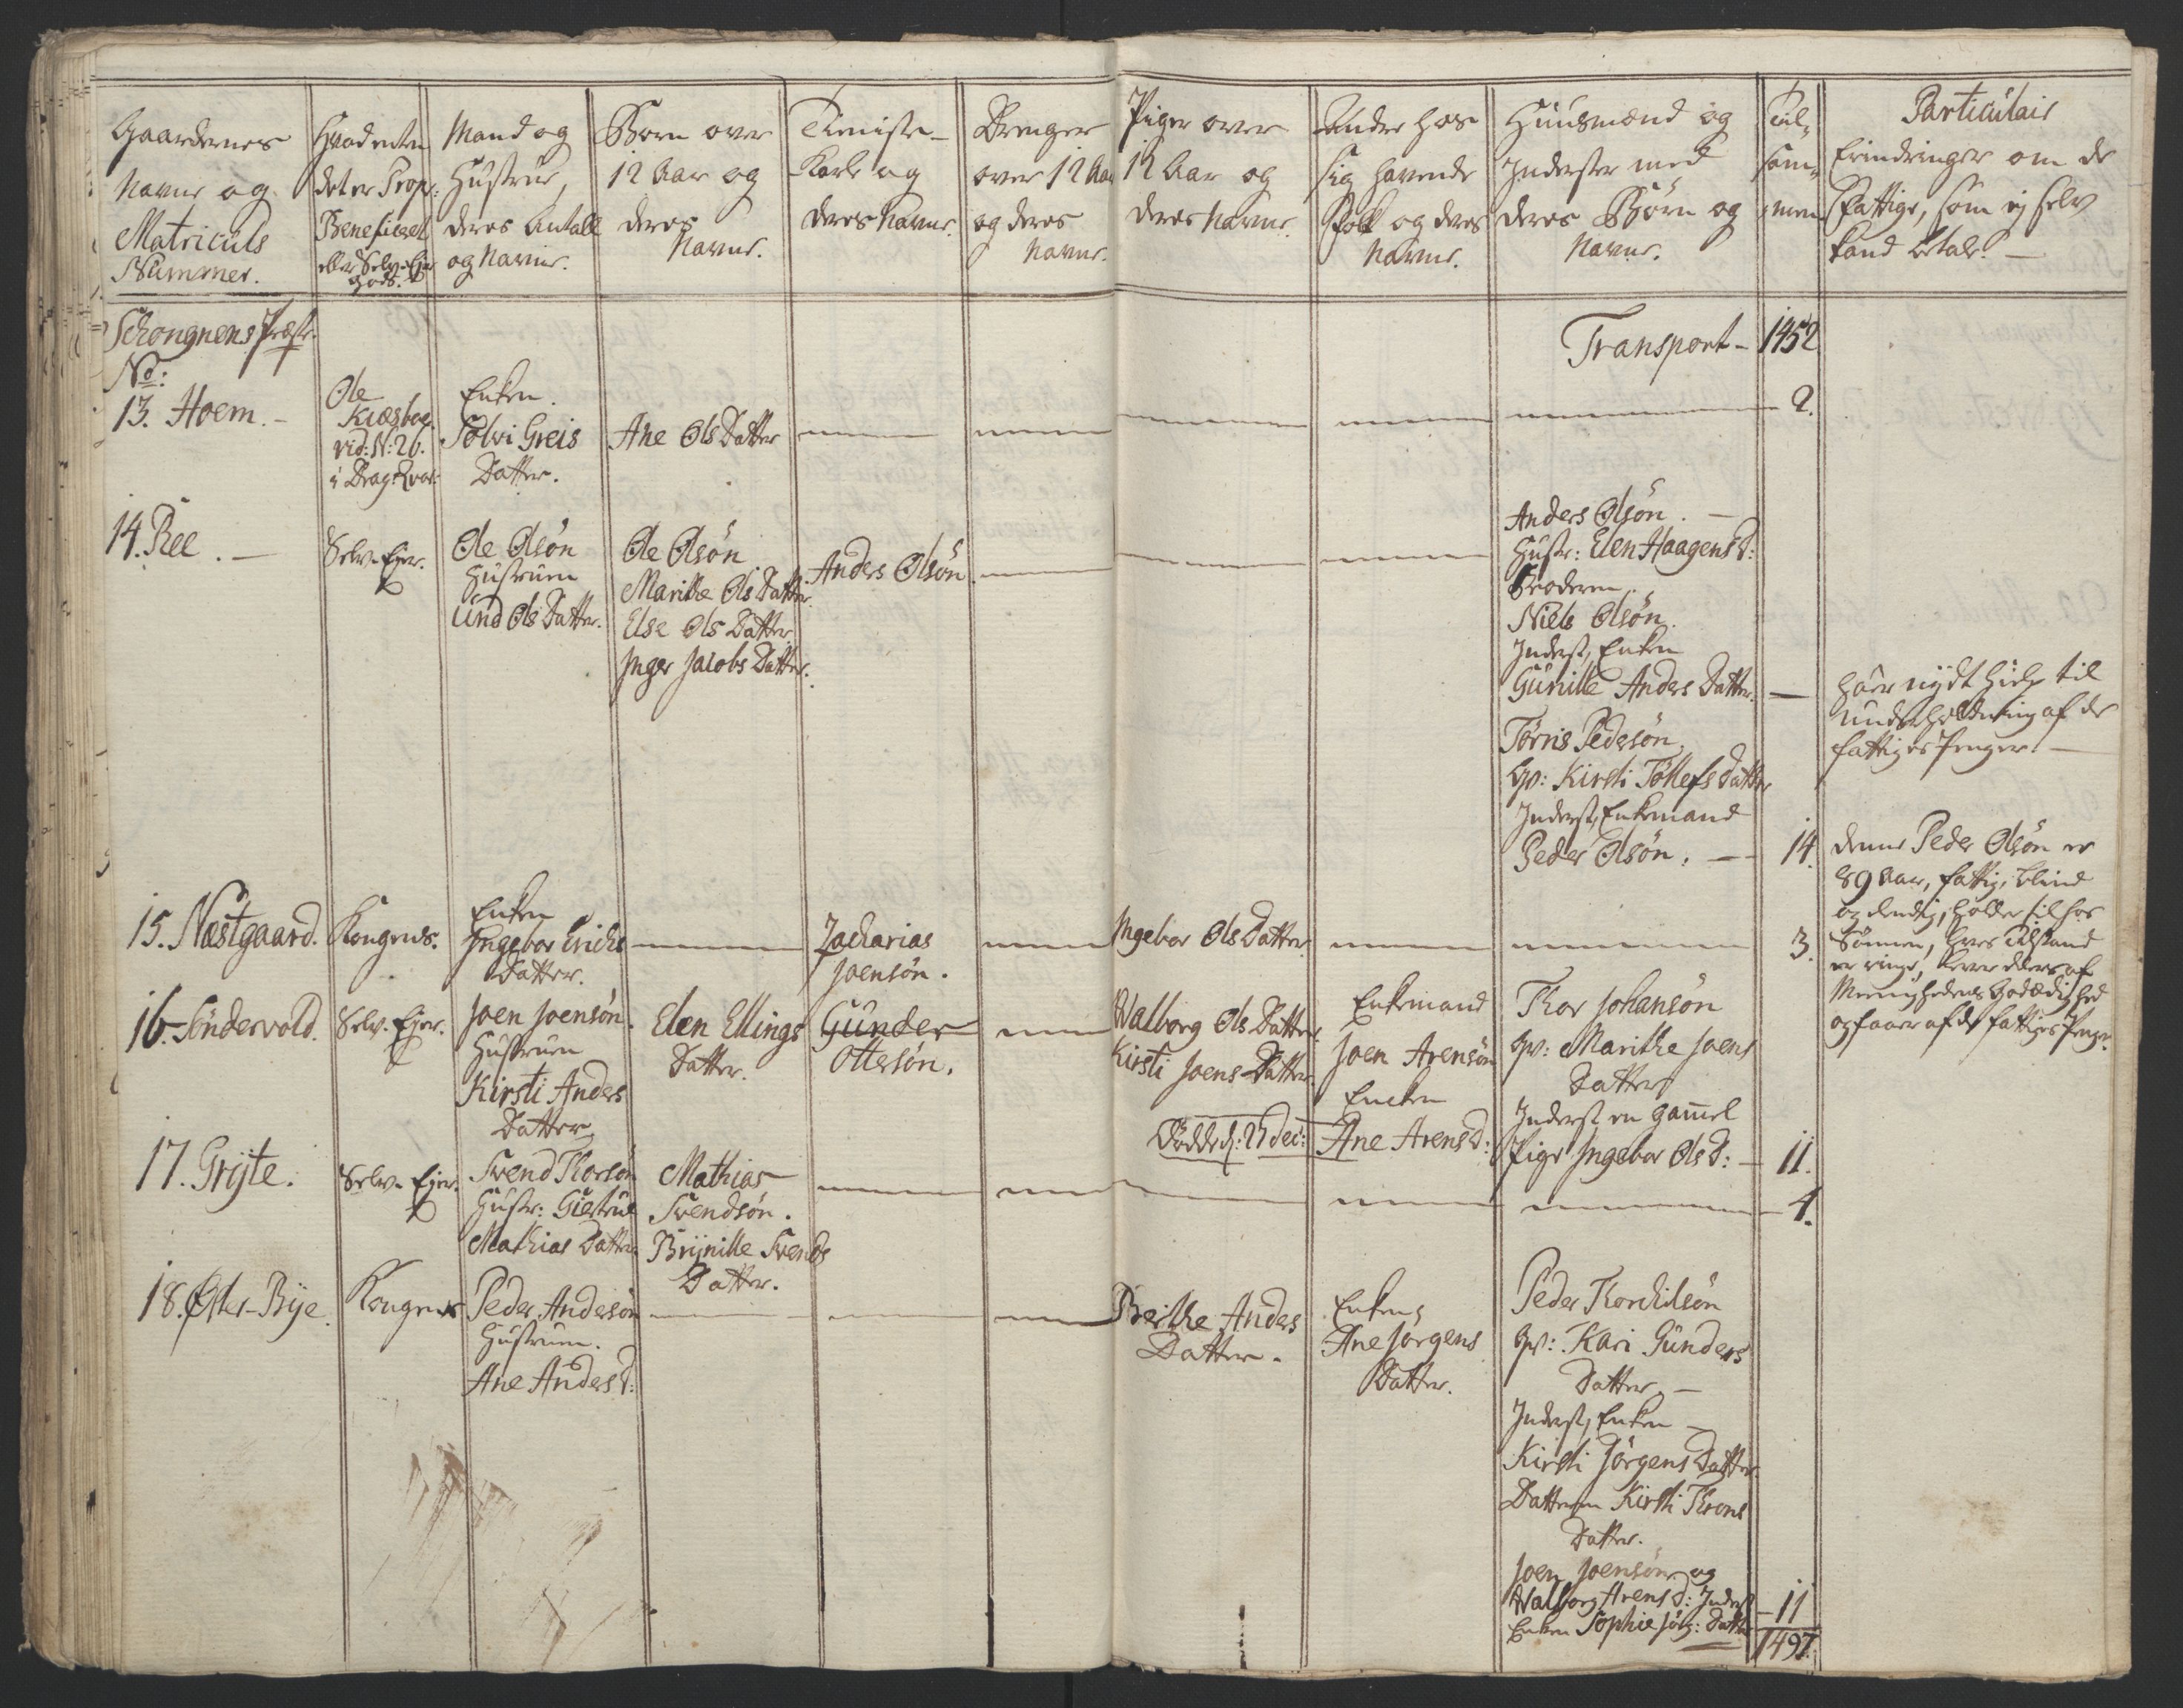 Gaardernes
Navne og
Matriculs
Nummer.
Hvad enten
det er Prop:
Beneficeret
eller Selv-Ejer
gods.
Mand og
Hustrue,
deres Antall
og Navne.
Børn over
12 Aar og
deres
Navne.
Tieniste-
Karle og
deres Navne.
Drenger
over 12 Aar
og deres
Navne.
Piger over
12 Aar og
deres Navne.
Andre hos
sig havende
Folk og deres
Navne.
Huusmænd og
Inderster med
deres Børn og
Navne.
Til-
sam-
men
Particulair
Erindringer om de
Fattige, som ej selv
kand betale.
Schongnens Præstr.
Transport - 1452
No:
13. Hoem.
Ole
Kræsboe
vid: N: 26.
i Drag: Qvar:
Enken.
Sølvi Greis
Datter.
Ane Ols Datter
2.
14. Ree.
Selv-Ejer.
Ole Olsøn
Hustruen
Und Ols Datter.
Ole Olsøn
Marithe Ols Datter.
Else Ols Datter
Inger Jacobs Datter.
Anders Olsøn
Anders Olsøn.
Hustr: Elen Haagens D:
Broderen
Niels Olsøn.
Inderst, Enken
Gunille Anders Datter.
Tørris Pedersøn
Qv: Kirsti Tøllefs Datter
Inderst, Enkemand
Peder Olsøn.
14.
haer nydt hielp til
underholdning af de
fattiges Penger.
denne Peder Olsøn er
89 Aar, fattig, blind
og elendig, holder sil hos
Sønnen, hves Tilstand
er ringe, lever ellers af
Meenighedens Godædighed
og faaer af de fattiges Penge.
15. Næstgaard.
Kongens.
Enken
Ingebor Erichs
Datter.
Zacharias
Joensøn.
Ingebor Ols Datter
3.
16. Søndervold.
Selv-Ejer.
Joen Joensøn.
Hustruen
Kirsti Anders
Datter
Elen Ellings
Datter.
Gunder
Ottersøn.
Walborg Ols Datter
Kirsti Joens Datter
Døde d: 27 dec:
Enkemand
Joen Arensøn
Encken
Ane Arens D:
Thor Johansøn
Qv: Marithe Joens
Datter
Inderst en gammel
Pige Ingebor Ols D:
11.
17. Gryte.
Selv-Ejer.
Svend Thorsøn
Hustr: Giertrue
Mathias Datter
Mathias
Svendsøn.
Brynille Svends
Datter.
4.
18. Øster-Bye.
Kongens
Peder Andersøn
Hustruen.
Ane Anders D:
Berthe Anders
Datter.
Enken,
Ane Jørgens
Datter.
Peder Thorchilsøn
Qv: Kari Gunders
Datter.
Inderst, Enken
Kirsti Jørgens Datter
Datteren Kirsti Throns
Datter.
Joen Joensøn og
Walborg Arens D: Inderst
Enken Sophie Jørg: Datter
11
1497.